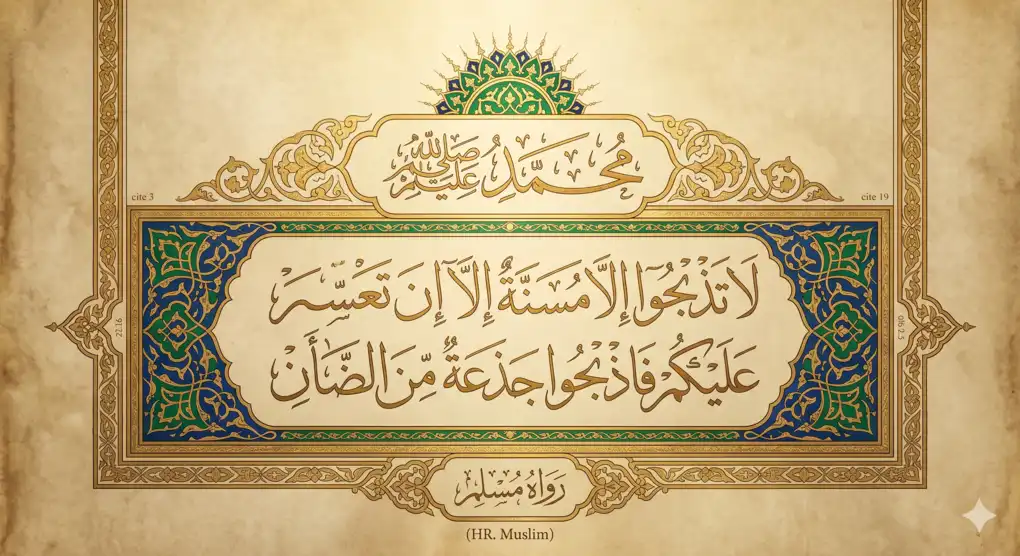 مُحَمَّدٍ صَلَّى اللَّهُ عَلَيْهِ وَسَلَّمَ
cite 3
cite 19
لَا تَذْبَحُوا إِلَّا مُسَنَّةٌ إِلَّآ إِنَ تَعَسَّرَ
عَلَيْكُمْ فَاذْبَحُوا جَذَعَةٌ مِّنَ الضَّأْنِ
رَوَاهُ مُسْلِمْ
(HR. Muslim)